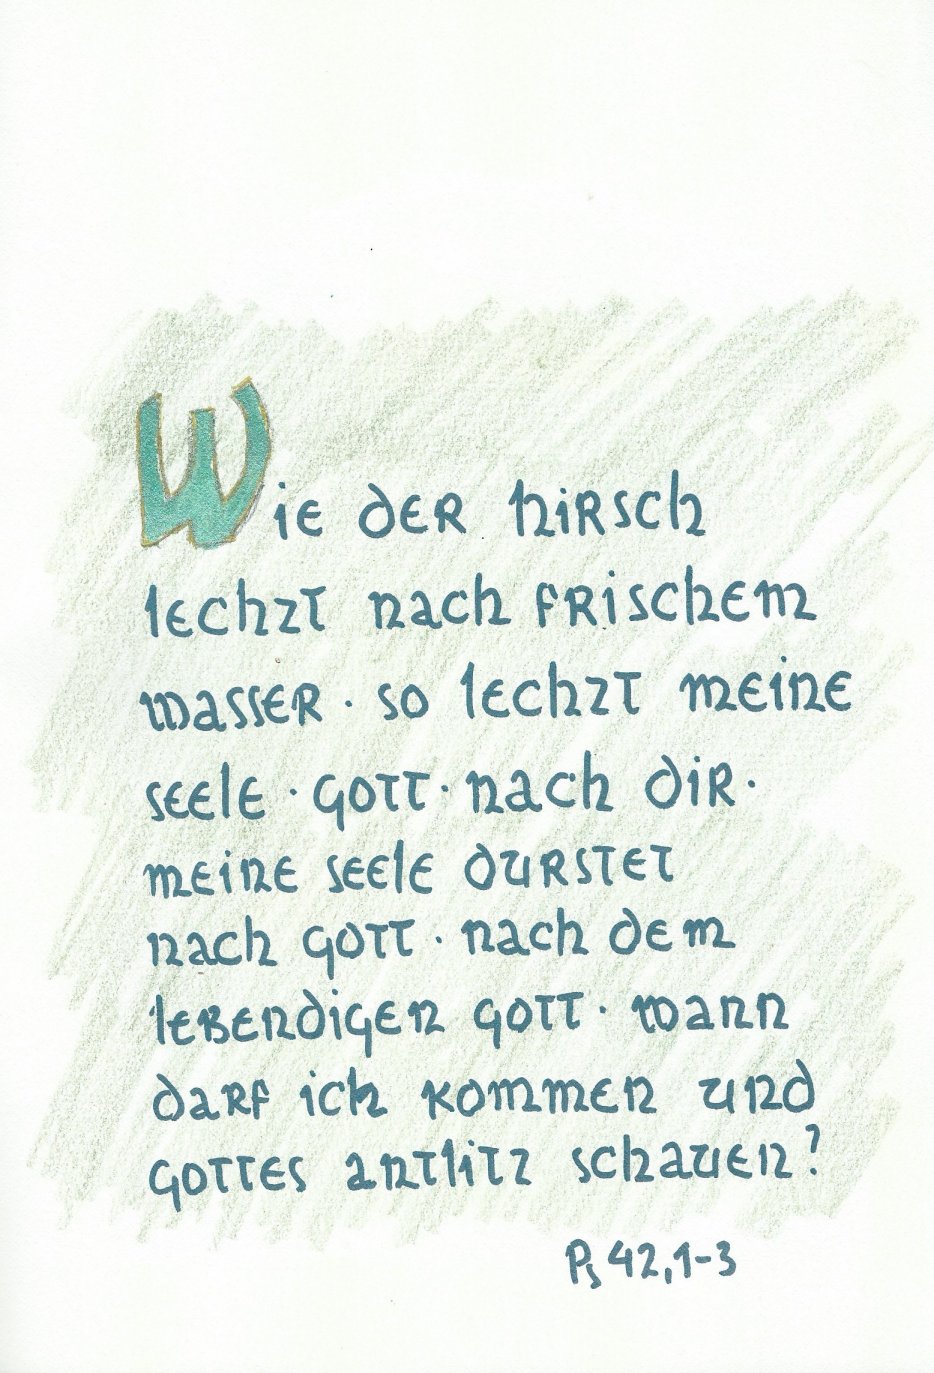 Wie der hirsch
lechzt nach frischem
wasser · so lechzt meine
seele · gott · nach dir ·
meine seele durstet
nach gott · nach dem
lebendigen gott · wann
darf ich kommen und
gottes antlitz schauen?
Ps 42,1-3